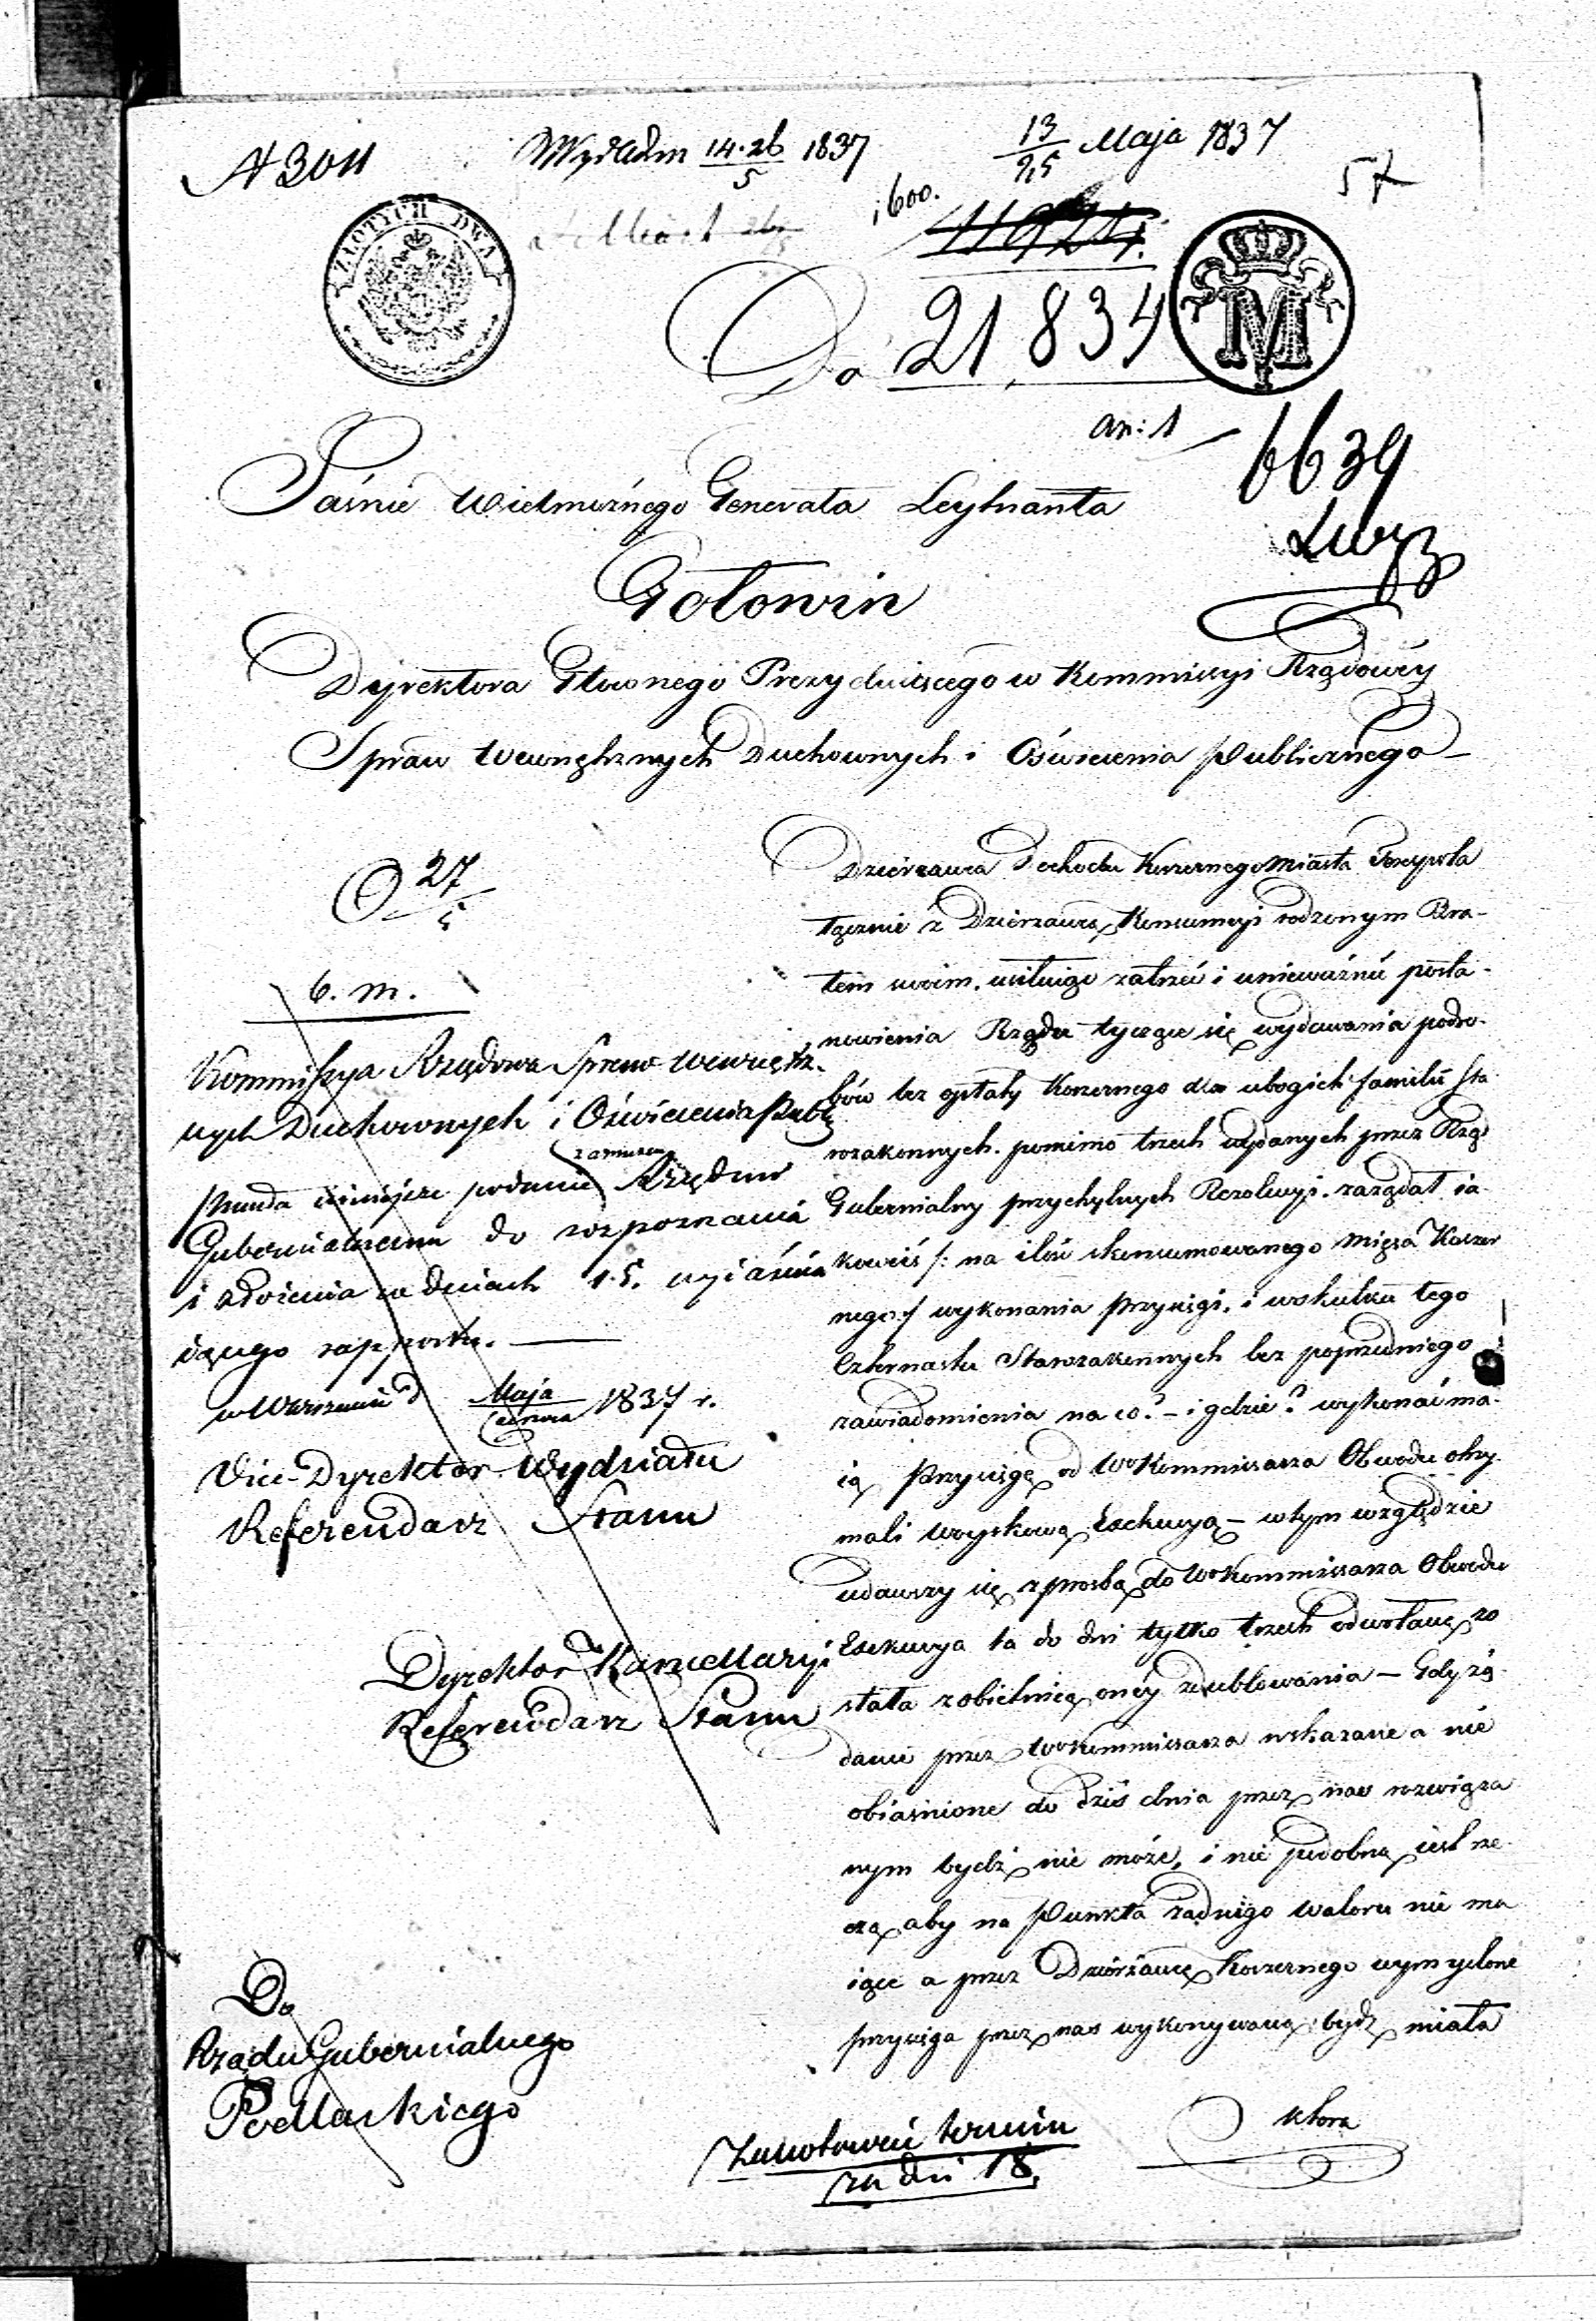 N 3011
Wydadm 14.26/5 1837
13/25 Maja 1837
57
ZŁOTYCH DWA
1600.
11921.
Do 21,834
M
an: 1
6639
Jaśnie Wielmożnego Generała Leytnanta
Gołowin
Dyrektora Głównego Prezyduiącego w Kommissyi Rządowéy
Spraw Wewnętrznych Duchownych i Oświecenia Publicznego
27/5
6. m.
Kommissya Rządowa Spraw Wewnętrz.
nych Duchownych i Oświecenia Publ.
niniejsze podanie Rządowi
Gubernialnemu do rozpoznania
i złożenia w dniach 15. wyiaśnia
iącego rapportu.
w Warszawie d Maja/Czerwca 1837 r.
Vice-Dyrektor Wydziału
Referendarz Stanu
Dyrektor Kancellaryi
Referendarz Stanu
Do
Rządu Gubernialnego
Podlaskiego
Dzierzawca Dochodu Koszernego Miasta
łącznie z Dzierzawcą Konsumcyi rodzonym Bra-
tem swoim, usiłuiąc zatrzeć i unieważnić posta-
nowienia Rządu tyczące się wydawania podro-
bów bez opłaty Koszernego dla ubogich familii Sta
rozakonnych. pomimo trzech wydanych przez Rząd
Gubernialny przychylnych Rezolucyi. zarządał ia
kowéiś /: na ilość skonsumowanego Mięsa Koszer
nego :/ wykonania Przysięgi, i wskutku tego
Czternastu Starozakonnych bez poprzedniego
zawiadomienia na co? - i gdzie? wykonać ma-
ią Przysięgę od Wo Kommissarza Obwodu otrzy
mali woyskową Exekucyą - w tym względzie
udawszy się z prosbą do Wo Kommissarza Obwodu
Exekucya ta do dni tylko trzech odwołaną zo
stała z obietnicą onéy zdublowania - Gdy żą-
danie przez Wo Kommissarza wskazane a nie
obiasnione do dziś dnia przez nas rozwiąza
nym bydź nie może, i nie podobną iest rze
czą aby na Punkta żadnego waloru nie ma
iące a przez Dzierżawcę Koszernego wymyslone
przysięga przez nas wykonywaną bydź miała
która
Zanotować termin
za dni 18.